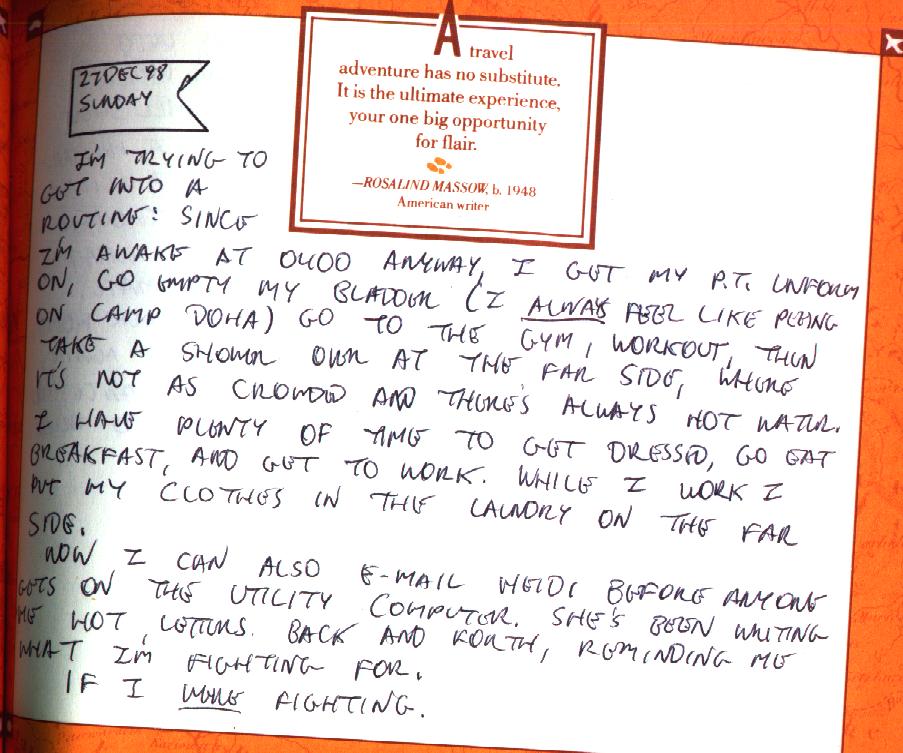 27 DEC 98
SUNDAY
A travel
adventure has no substitute.
It is the ultimate experience,
your one big opportunity
for flair.
—ROSALIND MASSOW, b. 1948
American writer
I'M TRYING TO
GET INTO A
ROUTINE: SINCE
I'M AWAKE AT 0400 ANYWAY, I GET MY P.T. UNIFORM
ON, GO EMPTY MY BLADDER (I ALWAYS FEEL LIKE PEEING
ON CAMP DOHA) GO TO THE GYM, WORKOUT, THEN
TAKE A SHOWER OVER AT THE FAR SIDE, WHERE
IT'S NOT AS CROWDED AND THERE'S ALWAYS HOT WATER.
I HAVE PLENTY OF TIME TO GET DRESSED, GO EAT
BREAKFAST, AND GET TO WORK. WHILE I WORK I
PUT MY CLOTHES IN THE LAUNDRY ON THE FAR
SIDE.
NOW I CAN ALSO E-MAIL HEIDI BEFORE ANYONE
GETS ON THE UTILITY COMPUTER. SHE'S BEEN WRITING
ME HOT LETTERS. BACK AND FORTH, REMINDING ME
WHAT I'M FIGHTING FOR.
IF I WERE FIGHTING.